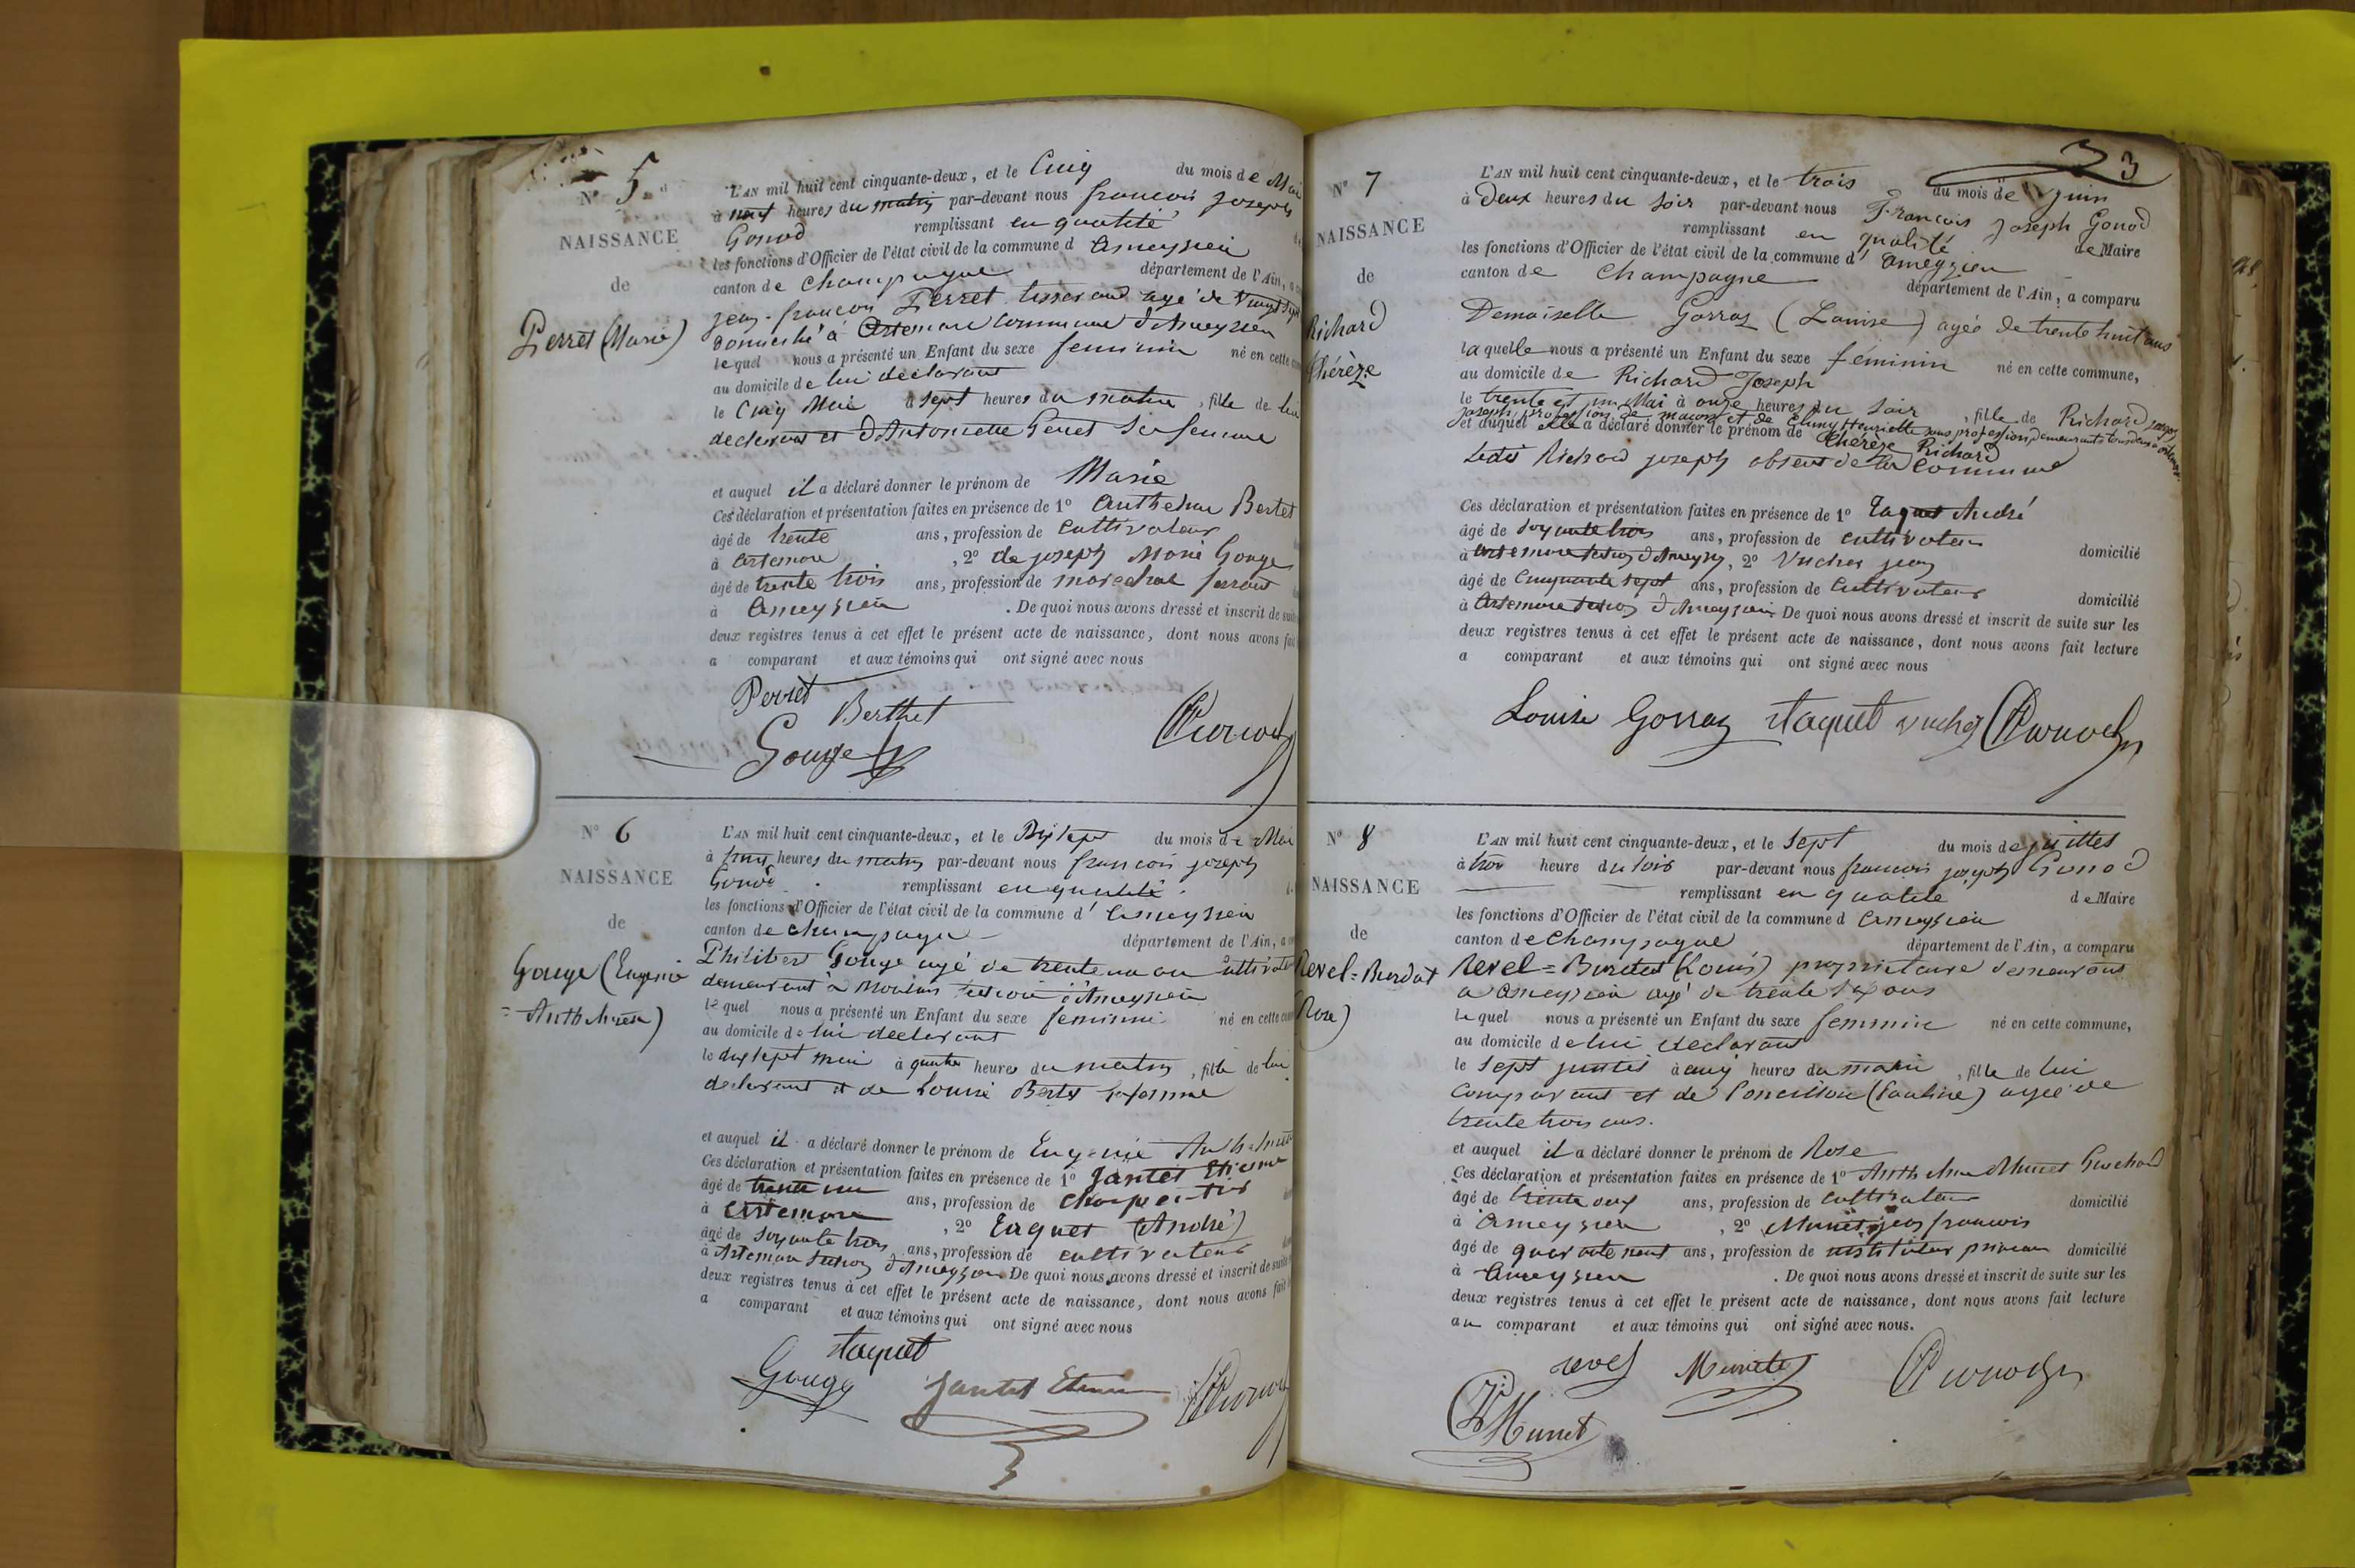 N° 5
NAISSANCE
de
Perret (Marie)
L'AN mil huit cent cinquante-deux, et le Cinq du mois de Mai
à neuf heures du matin par-devant nous francois joseph
Gonod remplissant en qualité
les fonctions d'Officier de l'état civil de la commune d Ameyzieu
canton de Champagne département de l'Ain, a
jean-francois Perret tisserand agé de vingt sept
domicilié à Artemare commune d'Ameyzieu
lequel nous a présenté un Enfant du sexe feminin né en cette
au domicile de lui declarant
le Cinq Mai à sept heures du matin, fille de lui
declarant et d'Antoinette Genet sa femme
et auquel il a déclaré donner le prénom de Marie
Ces déclaration et présentation faites en présence de 1° Anthelme Bertet
âgé de trente ans, profession de Cultivateur
à Artemare, 2° de joseph Marie Gouge
âgé de trente trois ans, profession de marechal ferrant
à Ameyzieu. De quoi nous avons dressé et inscrit de suite
deux registres tenus à cet effet le présent acte de naissance, dont nous avons fait
a comparant et aux témoins qui ont signé avec nous
Perret
Berthet
Gouge
N° 6
NAISSANCE
de
Gouge (Eugenie
L'AN mil huit cent cinquante-deux, et le Dix sept du mois de Mai
à heures du matin par-devant nous francois joseph
Gonod remplissant en qualité
les fonctions d'Officier de l'état civil de la commune d' Ameyzieu
canton de champagne département de l'Ain, a
Philibert Gouge agé de trente un an
demeurant à d'Ameyzieu
lequel nous a présenté un Enfant du sexe feminin né en cette
au domicile de lui declarant
le dix sept mai à quatre heures du matin, fille de lui
declarant et de Louise Bertet sa femme
et auquel il a déclaré donner le prénom de Eugenie
Ces déclaration et présentation faites en présence de 1° Jantet Etienne
âgé de trente un ans, profession de charpentier
à Artemare, 2° Taquet (André)
âgé de soixante trois ans, profession de cultivateur
à Artemare d'Ameyzieu De quoi nous avons dressé et inscrit de suite
deux registres tenus à cet effet le présent acte de naissance, dont nous avons fait
a comparant et aux témoins qui ont signé avec nous
Taquet
Gouge Jantet Etienne
3
N° 7
NAISSANCE
de
Richard
Thérèze
L'AN mil huit cent cinquante-deux, et le trois du mois de juin
à Deux heures du soir par-devant nous François Joseph Gonod
remplissant en qualité de Maire
les fonctions d'Officier de l'état civil de la commune d' Ameyzieu
canton de Champagne département de l'Ain, a comparu
Demoiselle Gorraz (Louise) agée de trente huit ans
laquelle nous a présenté un Enfant du sexe féminin né en cette commune,
au domicile de Richard Joseph
le trente et un Mai à onze heures du soir, fille de Richard
joseph profession de maçon et de Henriette sans profession demeurants tous deux à Artemare
et auquel elle a déclaré donner le prénom de Thérèze Richard
Ledit Richard joseph absent de la Commune
Ces déclaration et présentation faites en présence de 1° Taquet André
âgé de soixante trois ans, profession de cultivateur
à Artemare d'Ameyzieu, 2° Vucher jean domicilié
âgé de Cinquante sept ans, profession de Cultivateur
à Artemare d'Ameyzieu De quoi nous avons dressé et inscrit de suite sur les domicilié
deux registres tenus à cet effet le présent acte de naissance, dont nous avons fait lecture
a comparant et aux témoins qui ont signé avec nous
Louise Gorraz Taquet vucher
N° 8
NAISSANCE
de
Revel=Burdet
(Rose)
L'AN mil huit cent cinquante-deux, et le Sept du mois de juillet
à trois heure du soir par-devant nous francois joseph Gonod
remplissant en qualité de Maire
les fonctions d'Officier de l'état civil de la commune d Ameyzieu
canton de Champagne département de l'Ain, a comparu
Revel=Burdet (Louis) proprietaire demeurant
a Ameyzieu agé de trente six ans
lequel nous a présenté un Enfant du sexe feminin né en cette commune,
au domicile de lui declarant
le sept juillet à cinq heures du matin, fille de lui
Comparant et de (Pauline) agée de
trente trois ans.
et auquel il a déclaré donner le prénom de Rose
Ces déclaration et présentation faites en présence de 1° Anthelme Munet
âgé de trente deux ans, profession de Cultivateur domicilié
à Ameyzieu, 2° Munet jean francois
âgé de quarante neuf ans, profession de instituteur domicilié
à Ameyzieu. De quoi nous avons dressé et inscrit de suite sur les
deux registres tenus à cet effet le présent acte de naissance, dont nous avons fait lecture
au comparant et aux témoins qui ont signé avec nous.
revel Munet
Munet